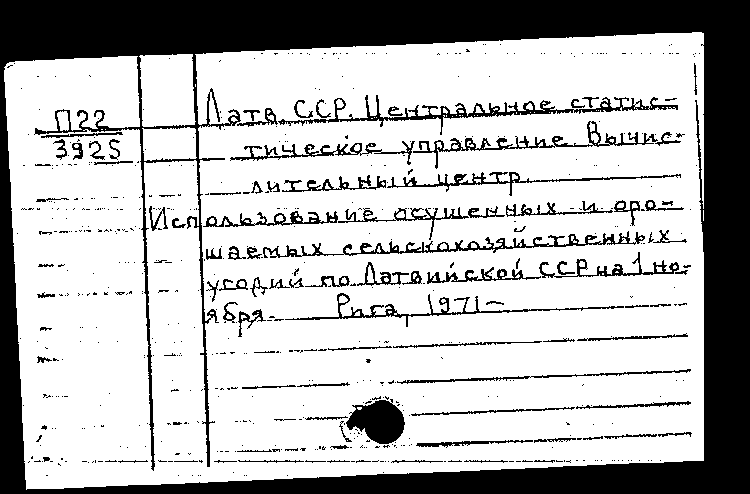 П22
3925
Латв. ССР. Центральное статис-
тическое управление. Вычис-
лительный центр.
Использование осушенных и оро-
шаемых сельскохозяйственных
угодий по Латвийской ССР на 1 но-
ября. Рига, 1971-